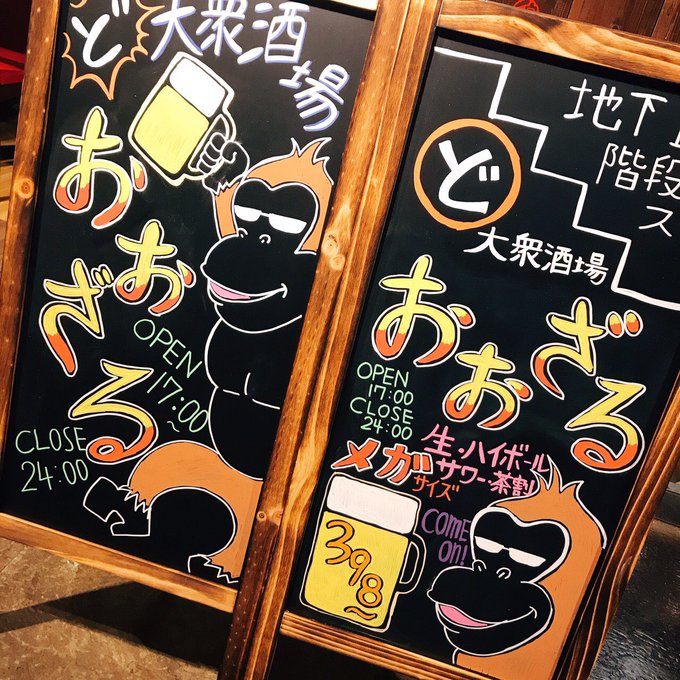 ど
大衆酒場
おおざる
OPEN
17:00
~
CLOSE
24:00
地下
階段
ス
ど
大衆酒場
おおざる
OPEN
17:00
CLOSE
24:00
生・ハイボール
サワー・茶割
メガサイズ
398~
COME
on!